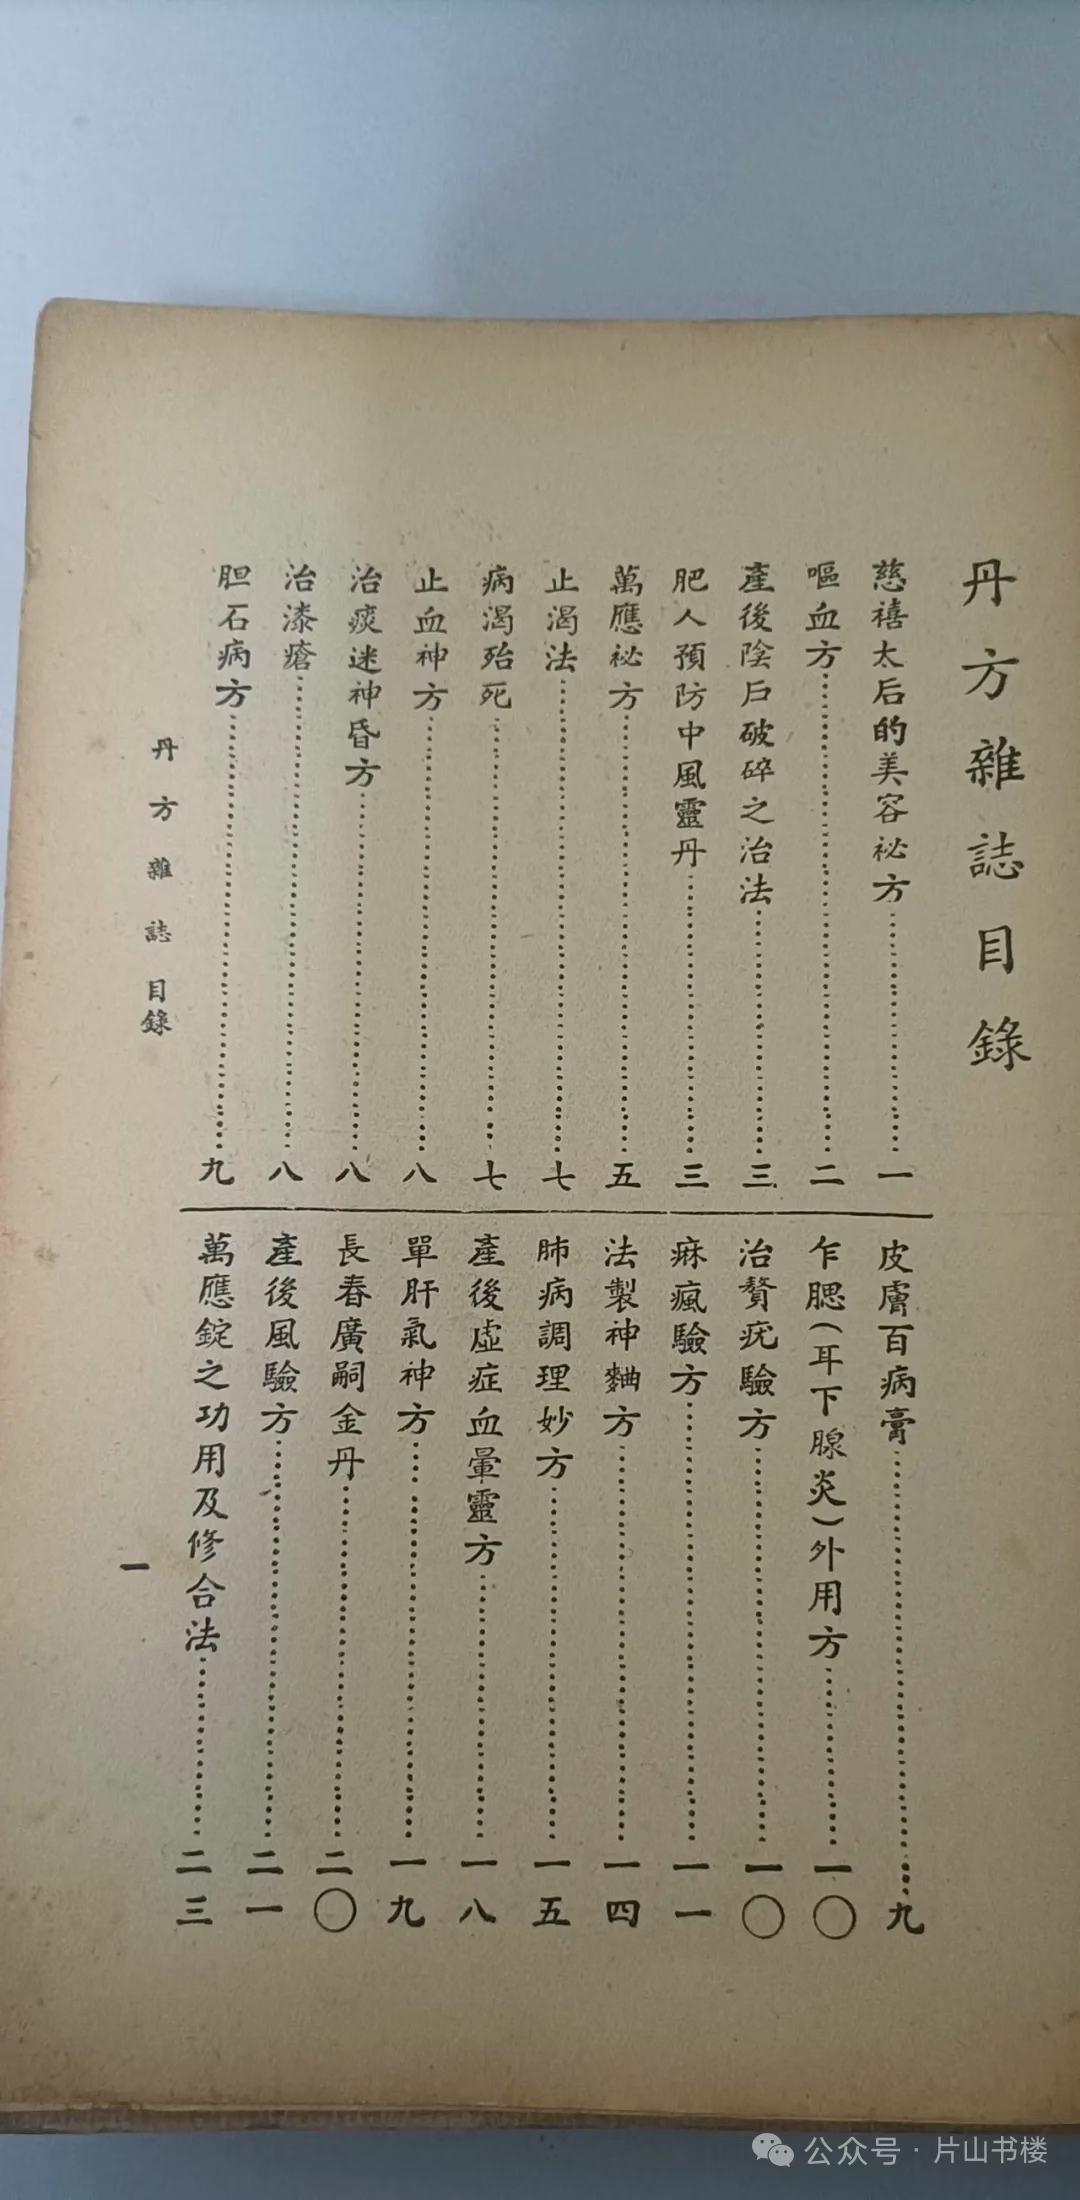 丹方雜誌目錄
慈禧太后的美容祕方…………一
嘔血方…………二
產後陰戶破碎之治法…………三
肥人預防中風靈丹…………三
萬應祕方…………五
止渴法…………七
病渴殆死…………七
止血神方…………八
治痰迷神昏方…………八
治漆瘡…………八
胆石病方…………九
皮膚百病膏…………九
乍腮(耳下腺炎)外用方…………一〇
治贅疣驗方…………一〇
麻瘋驗方…………一一
法製神麯方…………一四
肺病調理妙方…………一五
產後虛症血暈靈方…………一八
單肝氣神方…………一九
長春廣嗣金丹…………二〇
產後風驗方…………二一
萬應錠之功用及修合法…………二三
丹方雜誌目錄
一
公众号·片山书楼